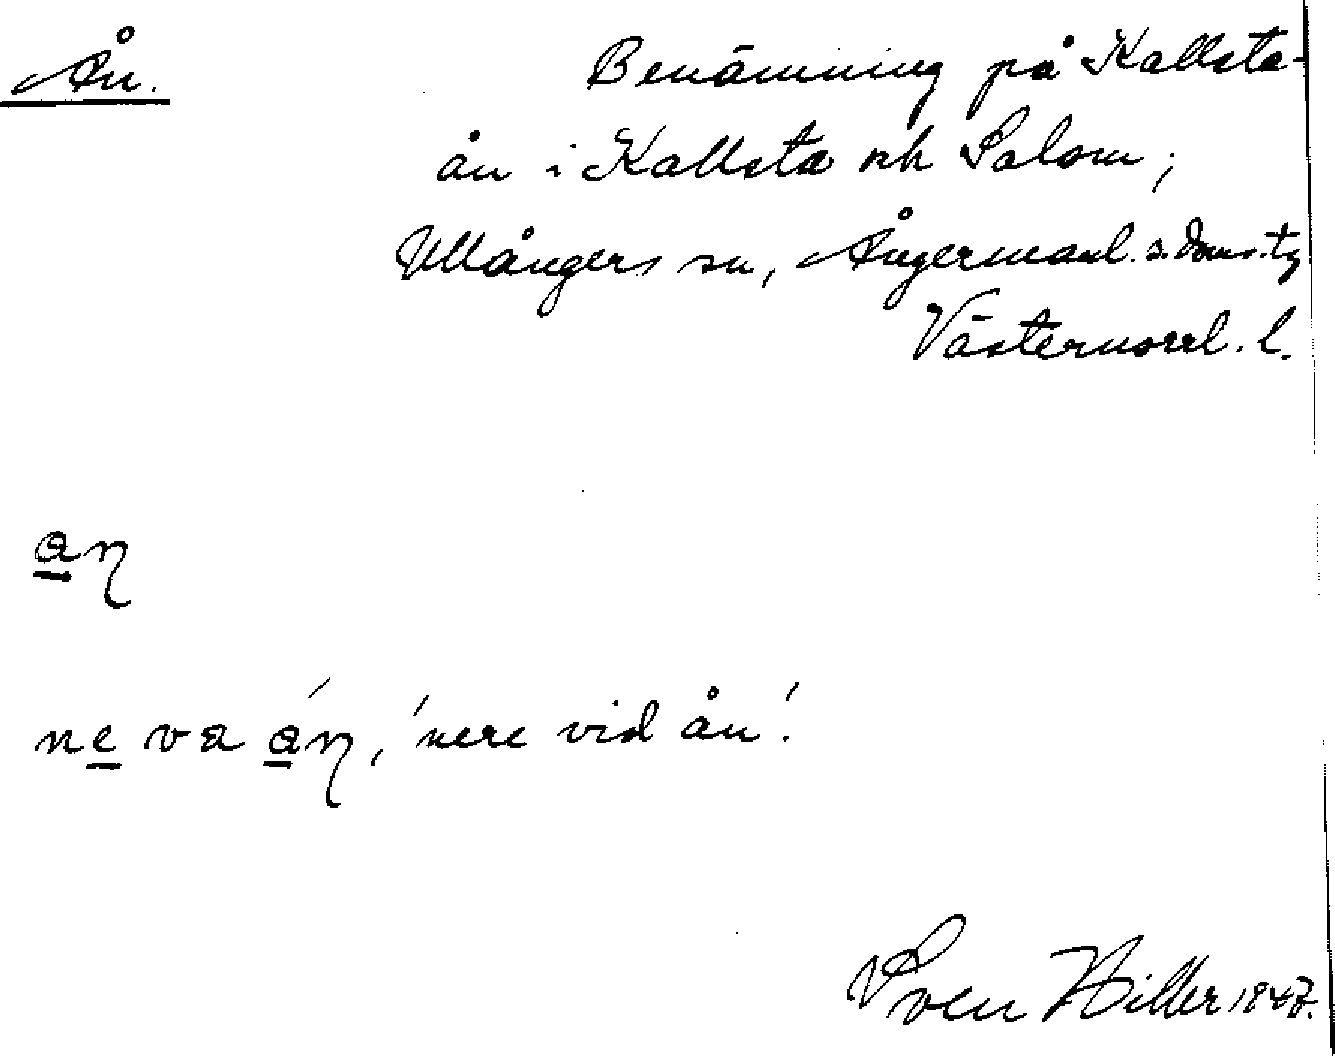 Ån. Benämning på Kallsta-
ån i Kallsta och Salom,
Ullångers sn, Ångermanl. s. doms. tg
Västernorrl. l.
ɑn̥
ne va ɑ́n̥, 'nere vid ån'.
Sven Hiller 1947.